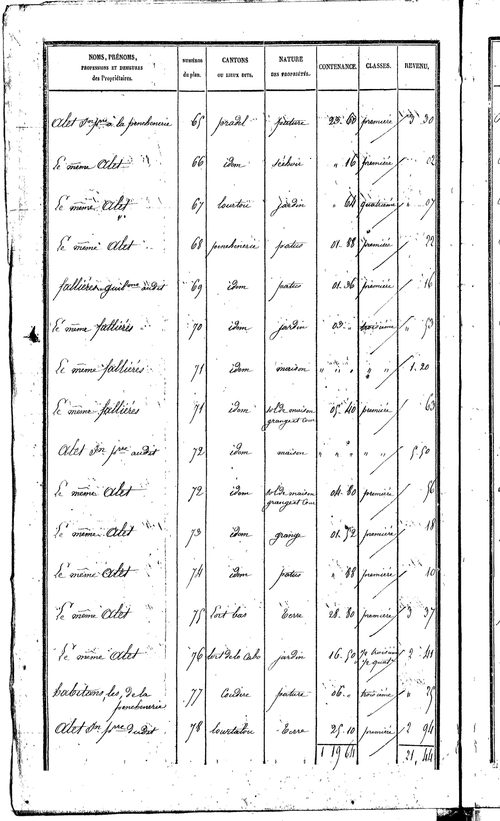 NOMS, PRÉNOMS, PROFESSIONS ET DEMEURES des Propriétaires. NUMÉROS du plan. CANTONS OU LIEUX DITS. NATURE DES PROPRIÉTÉS. CONTENANCE. CLASSES. REVENU.
Alet Jn pre à la ponchonerie 65 pradel pature 23. 60 première 3 30
Le même Alet 66 idem séchoir " 16 première " 02
Le même Alet 67 lourtou jardin " 64 quatrième " 07
Le même Alet 68 ponchonerie patus 01. 88 première " 22
fallières guilhme audit 69 idem patus 01. 36 première " 16
Le même fallières 70 idem jardin 03. " troisième " 53
Le même fallières 71 idem maison " " " " " 1. 20
Le même fallières 71 idem sol de maison grange et cour 05. 40 première 63
Alet Jn pre audit 72 idem maison " " " " " 5. 50
Le même Alet 72 idem sol de maison grange et cour 04. 80 première 56
Le même Alet 73 idem grange 01. 52 première 18
Le même Alet 74 idem patus " 88 première 10
Le même Alet 75 bas Terre 28. 80 première 3 37
Le même Alet 76 jardin 16. 50 2 41
habitans, les, de la ponchonerie 77 Coudere pature 06. " troisième " 25
Alet Jn pre dudit 78 lourtalou Terre 25. 10 première 2 94
1 19 64 21, 44